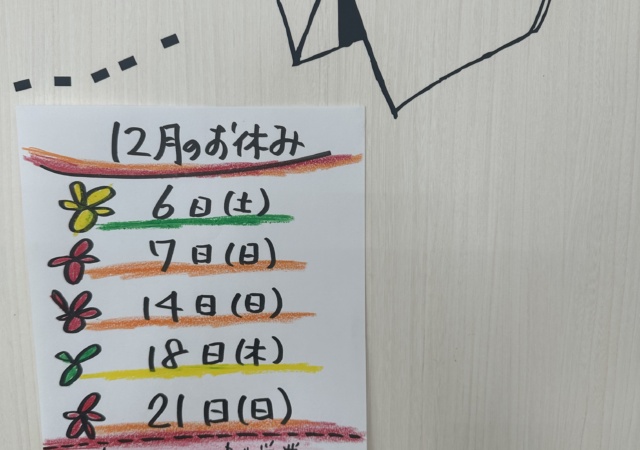 12月のお休み
6日(土)
7日(日)
14日(日)
18日(木)
21日(日)